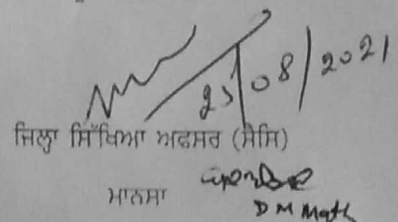 25/08/2021
ਜ਼ਿਲ੍ਹਾ ਸਿੱਖਿਆ ਅਫਸਰ (ਸੈਸਿ)
ਮਾਨਸਾ
DM Math